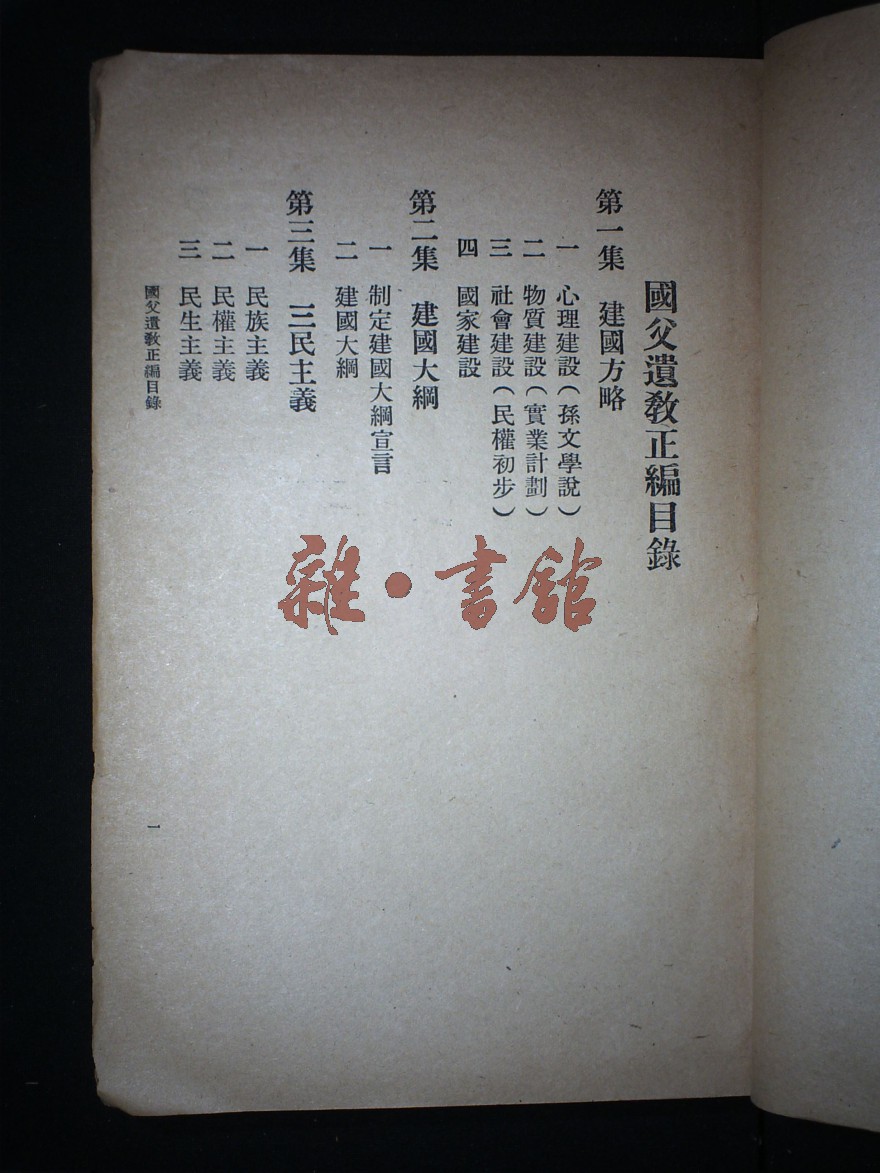 國父遺教正編目錄
第一集　建國方略
一　心理建設（孫文學說）
二　物質建設（實業計劃）
三　社會建設（民權初步）
四　國家建設
第二集　建國大綱
一　制定建國大綱宣言
二　建國大綱
第三集　三民主義
一　民族主義
二　民權主義
三　民生主義
國父遺教正編目錄
一
雜・書館